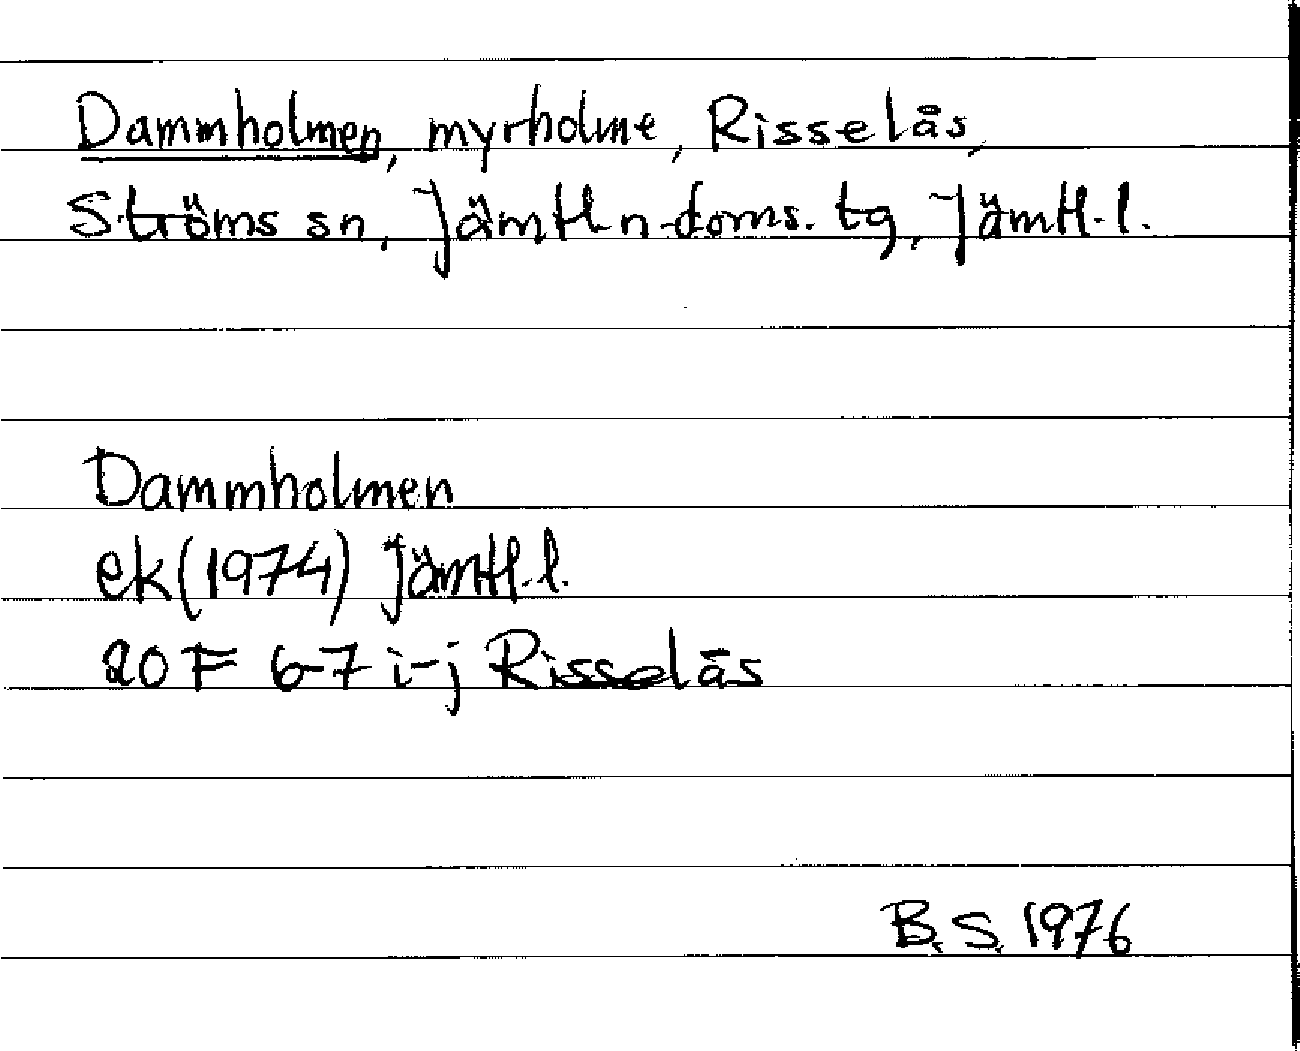 Dammholmen, myrholme, Risselås,
Ströms sn, Jämtl.n.doms. tg, Jämtl.l.
Dammholmen
ek(1974) Jämtl.l.
20 F 6-7 i-j Risselås
B.S. 1976